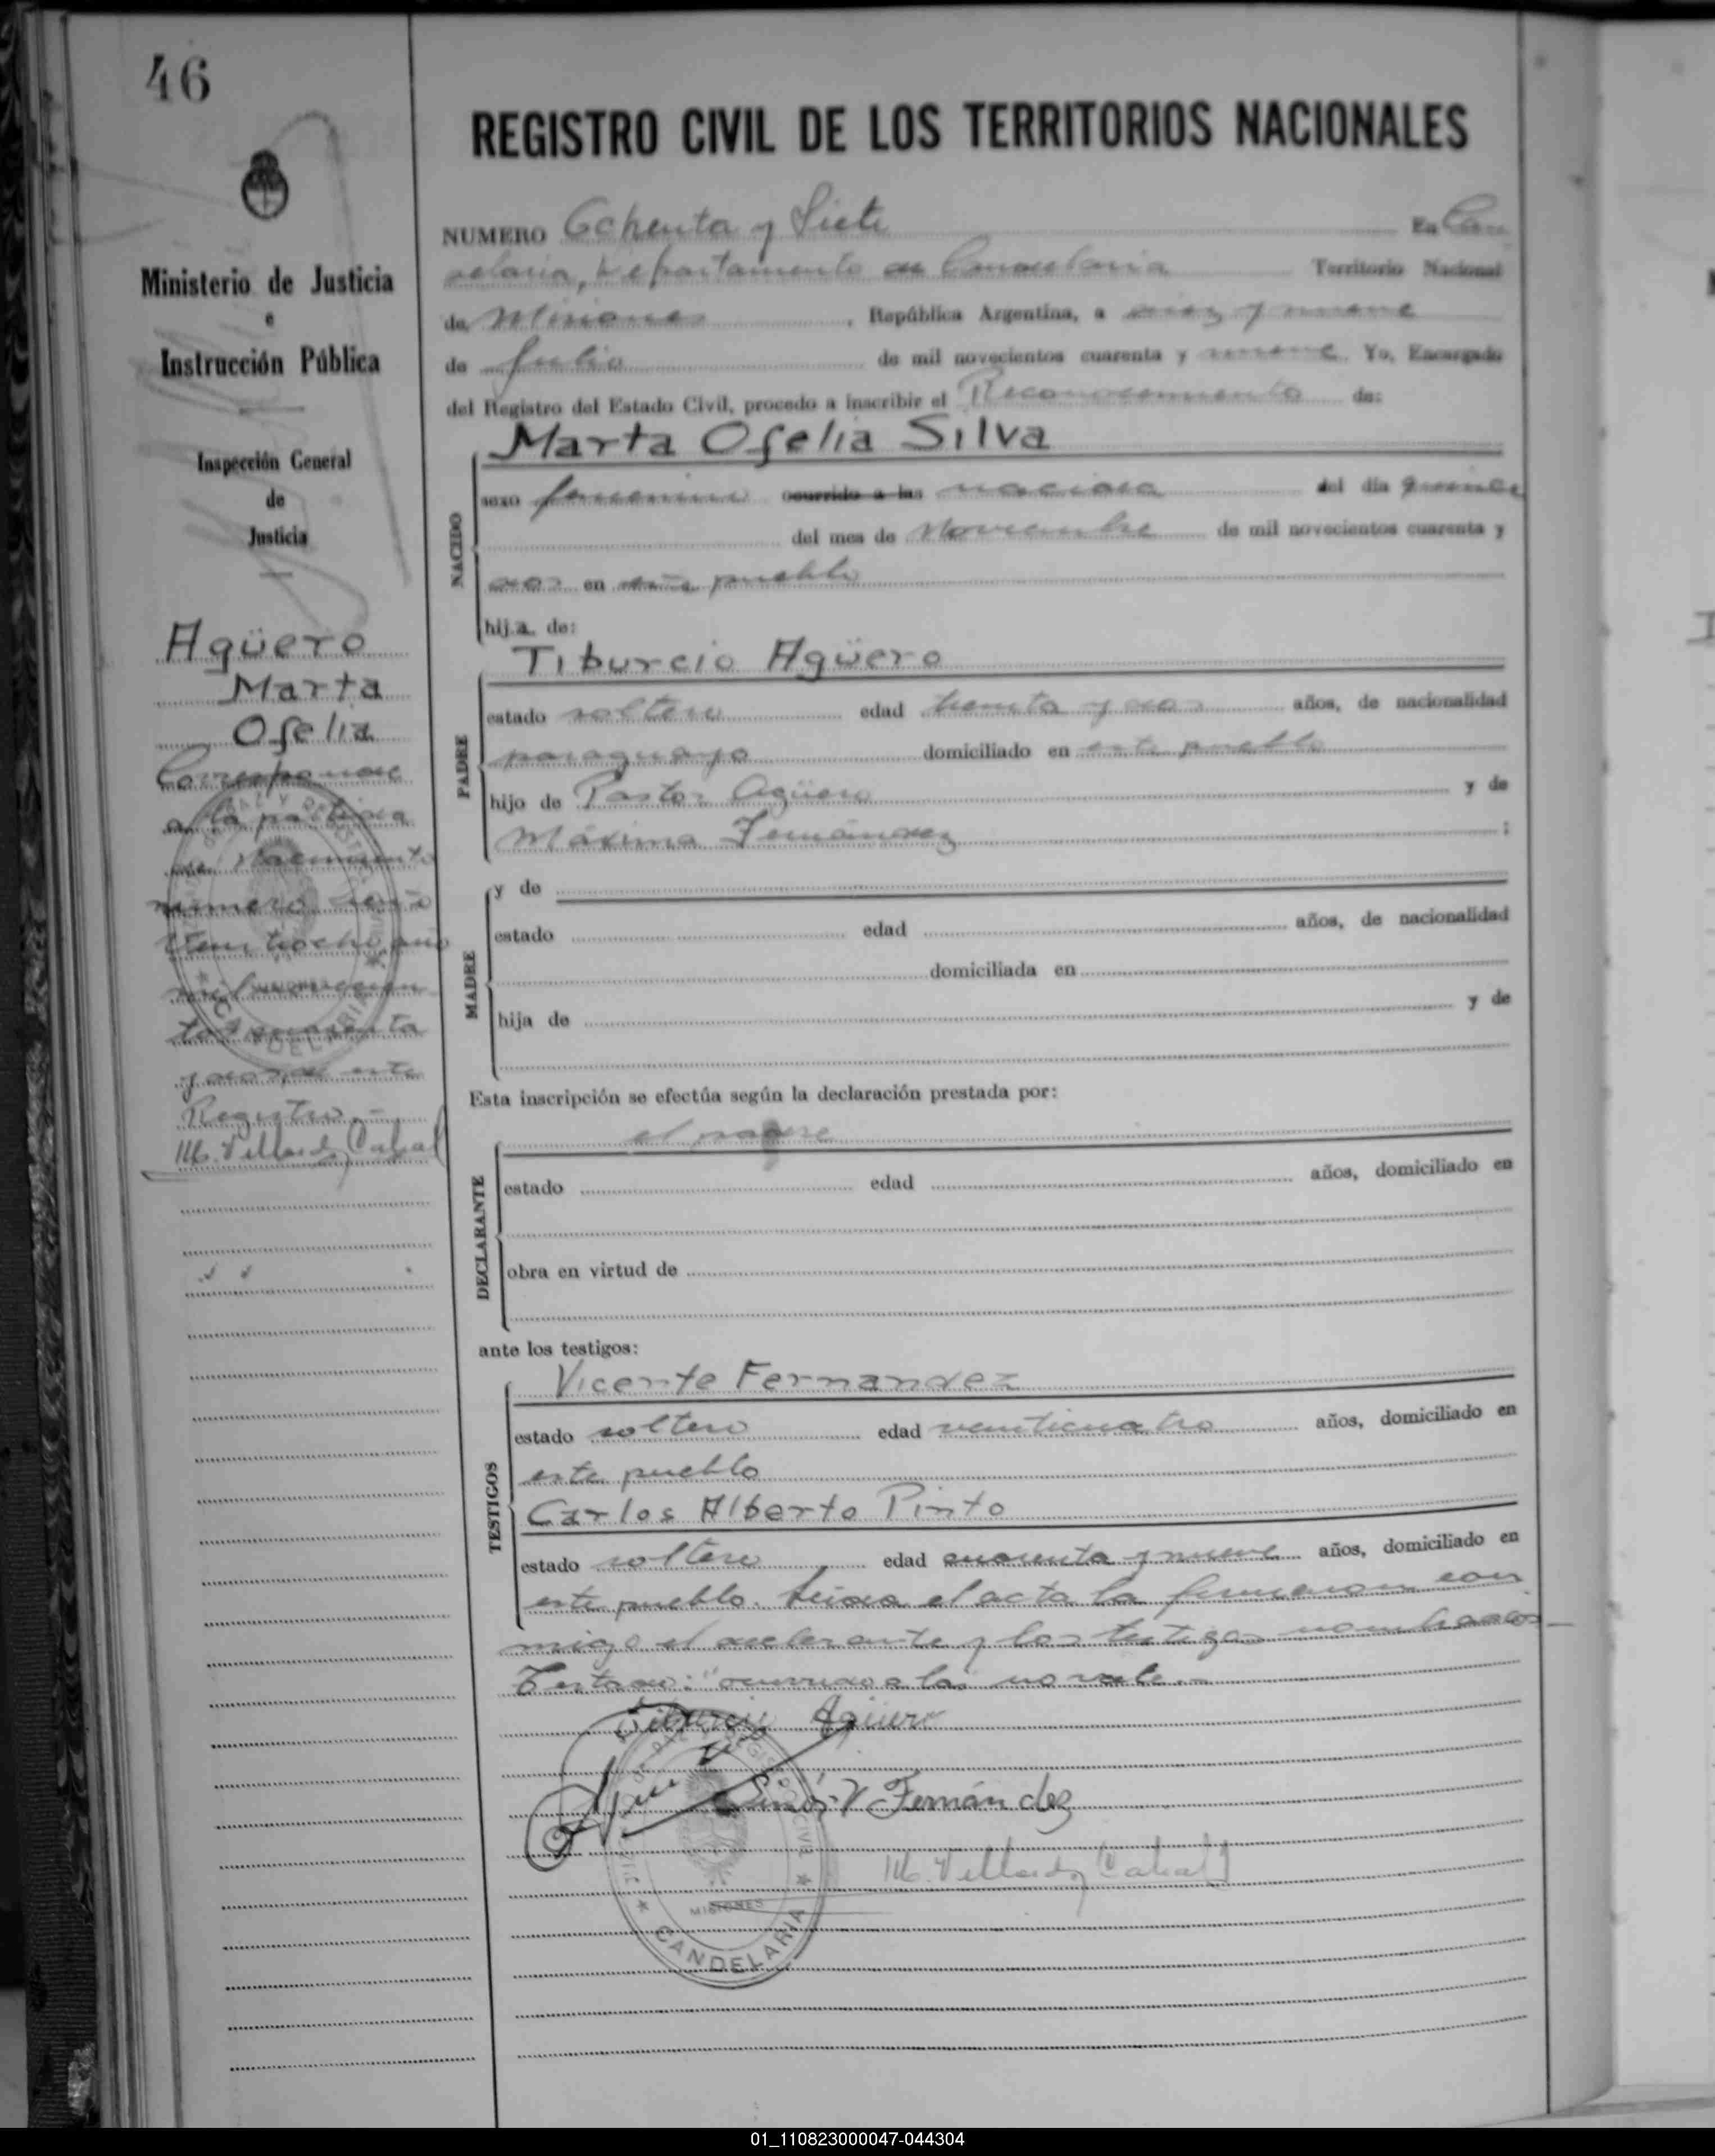 46
Ministerio de Justicia
e
Instrucción Pública
Inspección General
de
Justicia
Agüero
Marta
Ofelia
Corresponde
a la partida
de Nacimiento
número
veintiocho año
mil novecien
tos cuarenta
y dos de este
Registro.-
REGISTRO CIVIL DE LOS TERRITORIOS NACIONALES
NUMERO Ochenta y Siete En Can
delaria, Departamento de Candelaria Territorio Nacional
de Misiones, República Argentina, a diez y nueve
de Julio de mil novecientos cuarenta y nueve. Yo, Encargado
del Registro del Estado Civil, procedo a inscribir el Reconocimiento de:
Marta Ofelia Silva
NACIDO
sexo femenino ocurrido a las nacida del día quince
del mes de Noviembre de mil novecientos cuarenta y
dos en este pueblo
hija de:
Tiburcio Agüero
PADRE
estado soltero edad treinta y dos años, de nacionalidad
paraguayo domiciliado en este pueblo
hijo de Pastor Agüero y de
Máxima Fernández ;
MADRE
y de
estado edad años, de nacionalidad
domiciliada en
hija de y de
Esta inscripción se efectúa según la declaración prestada por:
el padre
DECLARANTE
estado edad años, domiciliado en
obra en virtud de
ante los testigos:
Vicente Fernandez
TESTIGOS
estado soltero edad veinticuatro años, domiciliado en
este pueblo
Carlos Alberto Pinto
estado soltero edad cuarenta y nueve años, domiciliado en
este pueblo. Leida el acta la firmaron con
migo el declarante y los testigos nombrados
Testado: "ocurrido a las no vale.-
Tiburcio Agüero
V Fernández
MISIONES
CANDELARIA
01_110823000047-044304